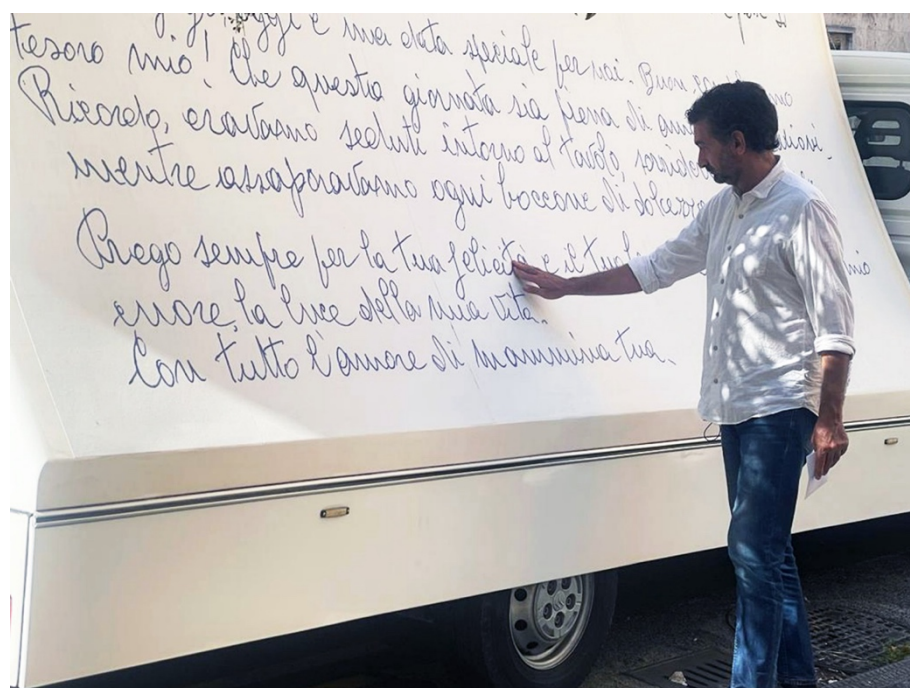 oggi è una data speciale per noi. Buon
tesoro mio! Che questa giornata sia piena di
Ricordo, eravamo seduti intorno al tavolo,
mentre assaporavamo ogni boccone di dolcezza
Prego sempre per la tua felicità e il tuo
cuore, la luce della mia vita.
Con tutto l'amore di mammina tua.